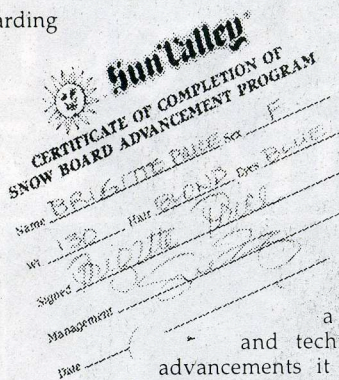 arding
Sun Valley
CERTIFICATE OF COMPLETION OF
SNOW BOARD ADVANCEMENT PROGRAM
Name BRIGITTE Sex F
Wt 130 Hair BLOND Eyes BLUE
Signed
Management
Date
a
and tech
advancements it